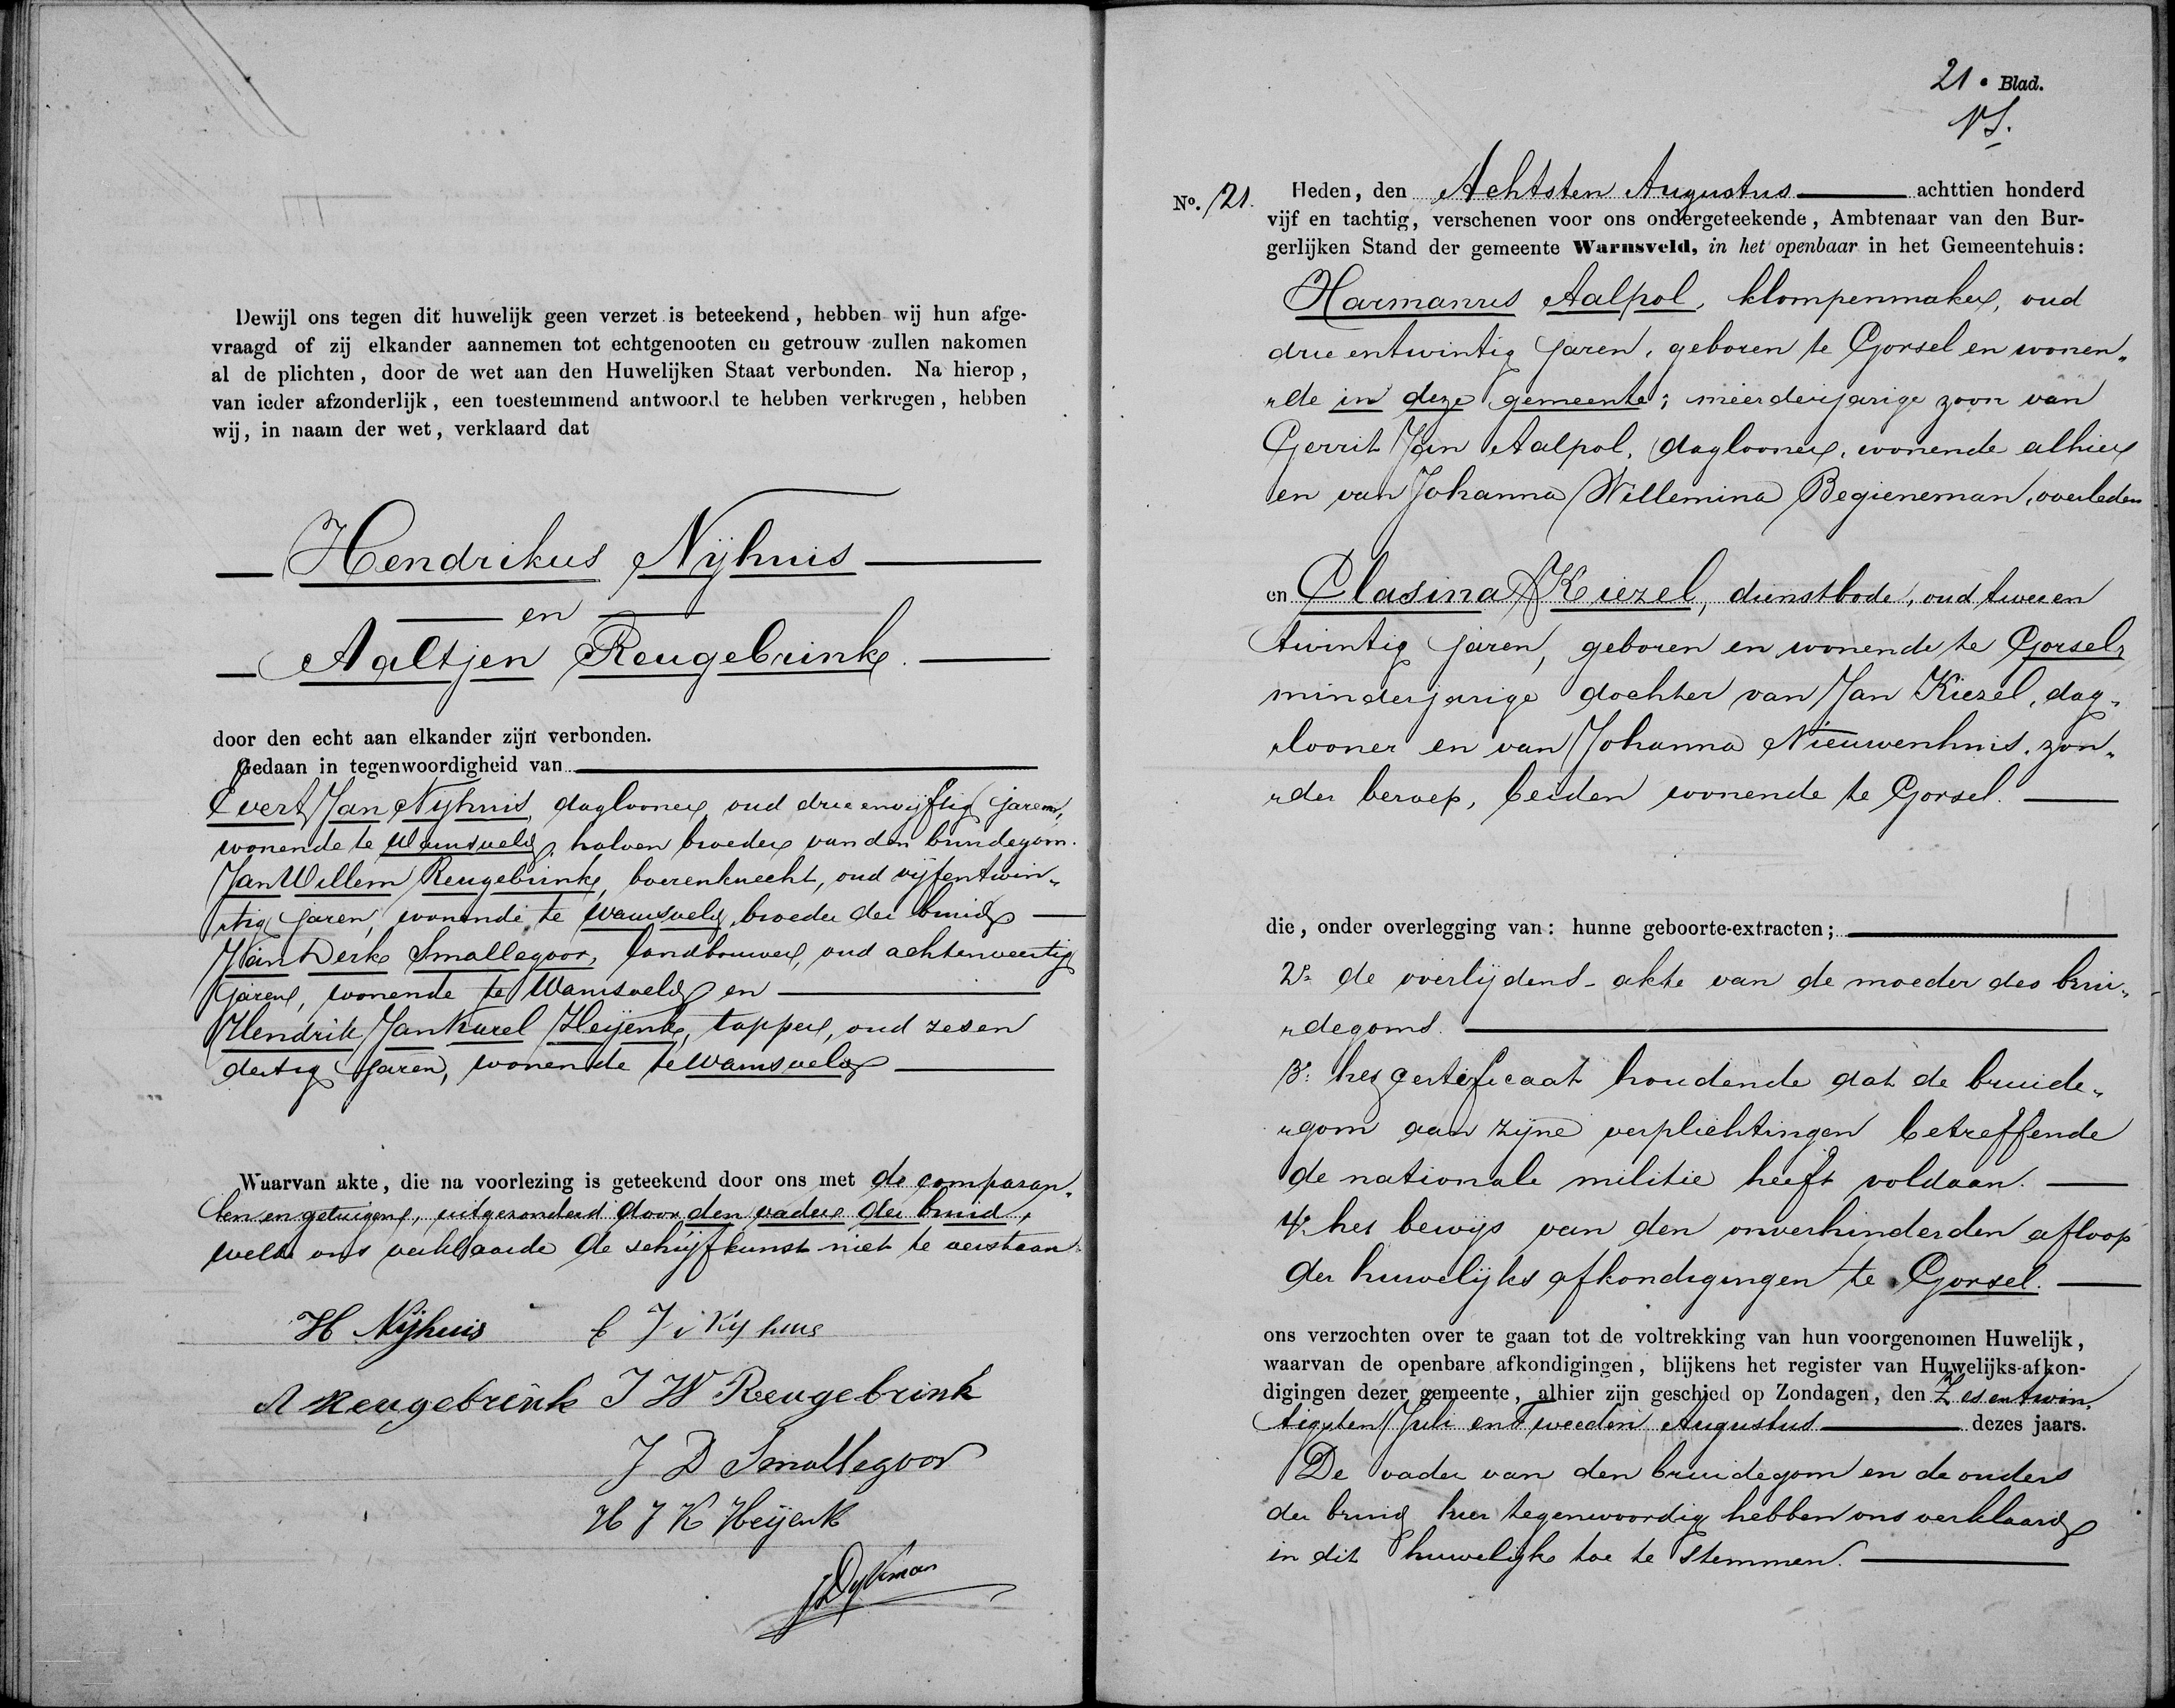 Dewijl ons tegen dit huwelijk geen verzet is beteekend, hebben wij hun afge-
vraagd of zij elkander aannemen tot echtgenooten en getrouw zullen nakomen
al de plichten, door de wet aan den Huwelijken Staat verbonden. Na hierop,
van ieder afzonderlijk, een toestemmend antwoord te hebben verkregen, hebben
wij, in naam der wet, verklaard dat
Hendrikus Nijhuis
en
Aaltjen Reugebrink.
door den echt aan elkander zijn verbonden.
Gedaan in tegenwoordigheid van
Evert Jan Nijhuis, daglooner, oud drie envijftig jaren,
wonende te Warnsveld, halven broeder van den bruidegom.
Jan Willem Reugebrink, boerenknecht, oud vijfentwin„
„tig jaren, wonende te Warnsveld, broeder der bruid
Jan Derk Smallegoor, landbouwer, oud achtenveertig
jaren, wonende te Warnsveld en
Hendrik Jan Karel Heijenk, tapper, oud zesen
dertig jaren, wonende te Warnsveld
Waarvan akte, die na voorlezing is geteekend door ons met de comparan„
ten en getuigen, uitgezonderd door den vader der bruid,
welke ons verklaarde de schrijfkunst niet te verstaan.
H Nijhuis
E J Nijhuis
A Reugebrink J W Reugebrink
J D Smallegoor
H J K Heijenk
J Dijkman
21e Blad.
No. 21.
Heden, den Achtsten Augustus achttien honderd
vijf en tachtig, verschenen voor ons ondergeteekende, Ambtenaar van den Bur-
gerlijken Stand der gemeente Warnsveld, in het openbaar in het Gemeentehuis:
Harmanus Aalpol, klompenmaker, oud
drie entwintig jaren, geboren te Gorsel en wonen„
„de in deze gemeente; meerderjarige zoon van
Gerrit Jan Aalpol, daglooner, wonende alhier
en van Johanna Willemina Begieneman, overleden
en Clasina Kiezel, dienstbode, oud twee en
twintig jaren, geboren en wonende te Gorsel,
minderjarige dochter van Jan Kiezel, dag„
„looner en van Johanna Nieuwenhuis, zon„
„der beroep, beiden wonende te Gorsel.
die, onder overlegging van: hunne geboorte-extracten;
2e de overlijdens-akte van de moeder des brui„
„degoms.
3e het certificaat houdende dat de bruide„
„gom aan zijne verplichtingen betreffende
de nationale militie heeft voldaan.
4e het bewijs van den onverhinderden afloop
der huwelijks afkondigingen te Gorsel.
ons verzochten over te gaan tot de voltrekking van hun voorgenomen Huwelijk,
waarvan de openbare afkondigingen, blijkens het register van Huwelijks-afkon-
digingen dezer gemeente, alhier zijn geschied op Zondagen, den Zes entwin„
tigsten Juli en Tweeden Augustus dezes jaars.
De vader van den bruidegom en de ouders
der bruid hier tegenwoordig hebben ons verklaard
in dit huwelijk toe te stemmen.